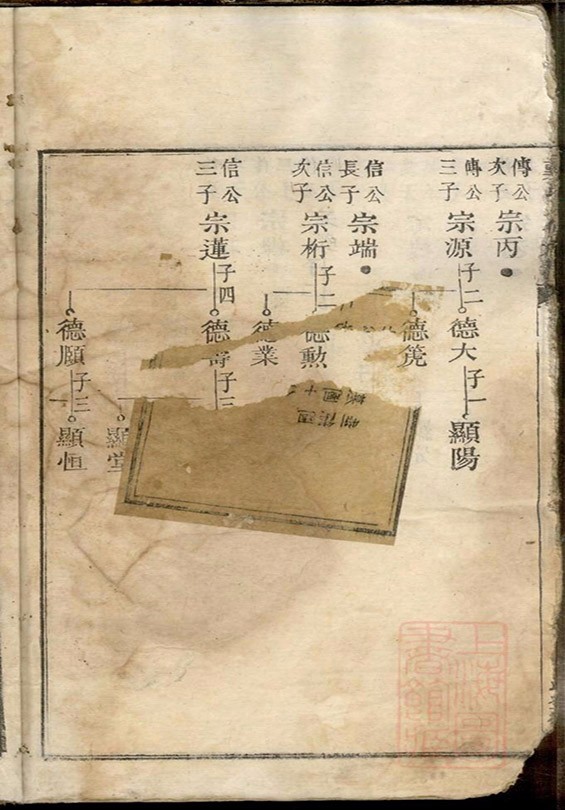 傳公次子 宗丙
傳公三子 宗源 子二 德大 子一 顯陽
德箢
信公長子 宗端
信公次子 宗桁 子二 德勲
德業
信公三子 宗蓮 子四 德壽 子三
顯堂
德願 子三 顯恒